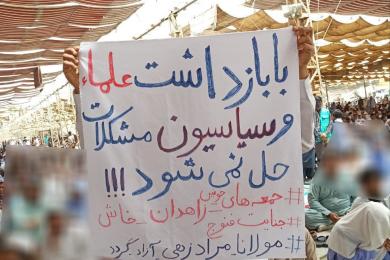 با بازداشت علماء
و سیاسیون مشکلات
حل نمی شود!!!
#جمعه های خونین زاهدان - خاش
#جنایت فنوج
#مولانا مرادزهی آزاد گردد